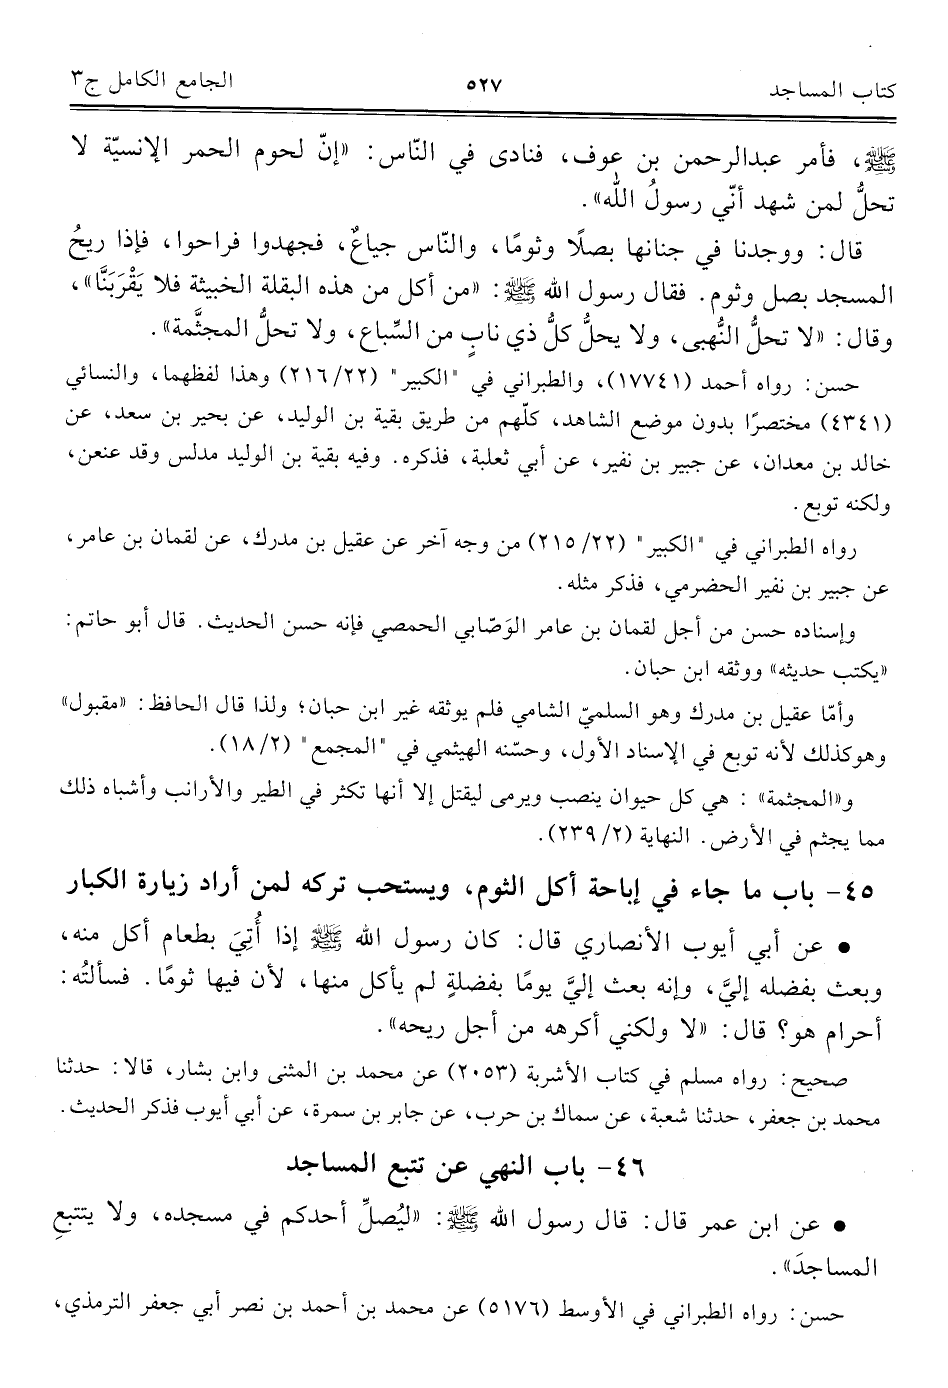 كتاب المساجد ٥٢٧ الجامع الكامل ج٣
ﷺ، فأمر عبدالرحمن بن عوف، فنادى في النّاس: «إنّ لحوم الحمر الإنسيّة لا
تحلُّ لمن شهد أنّي رسولُ الله».
قال: ووجدنا في جنانها بصلًا وثومًا، والنّاس جياعٌ، فجهدوا فراحوا، فإذا ريحُ
المسجد بصل وثوم. فقال رسول الله ﷺ: «من أكل من هذه البقلة الخبيثة فلا يَقْرَبَنَّا»،
وقال: «لا تحلُّ النُّهبى، ولا يحلُّ كلُّ ذي نابٍ من السِّباع، ولا تحلُّ المجثَّمة».
حسن: رواه أحمد (١٧٧٤١)، والطبراني في "الكبير" (٢١٦/٢٢) وهذا لفظهما، والنسائي
(٤٣٤١) مختصرًا بدون موضع الشاهد، كلّهم من طريق بقية بن الوليد، عن بحير بن سعد، عن
خالد بن معدان، عن جبير بن نفير، عن أبي ثعلبة، فذكره. وفيه بقية بن الوليد مدلس وقد عنعن،
ولكنه توبع.
رواه الطبراني في "الكبير" (٢١٥/٢٢) من وجه آخر عن عقيل بن مدرك، عن لقمان بن عامر،
عن جبير بن نفير الحضرمي، فذكر مثله.
وإسناده حسن من أجل لقمان بن عامر الوَصّابي الحمصي فإنه حسن الحديث. قال أبو حاتم:
«يكتب حديثه» ووثقه ابن حبان.
وأمّا عقيل بن مدرك وهو السلميّ الشامي فلم يوثقه غير ابن حبان؛ ولذا قال الحافظ: «مقبول»
وهوكذلك لأنه توبع في الإسناد الأول، وحسّنه الهيثمي في "المجمع" (١٨/٢).
و«المجثمة» : هي كل حيوان ينصب ويرمى ليقتل إلا أنها تكثر في الطير والأرانب وأشباه ذلك
مما يجثم في الأرض. النهاية (٢٣٩/٢).
٤٥- باب ما جاء في إباحة أكل الثوم، ويستحب تركه لمن أراد زيارة الكبار
• عن أبي أيوب الأنصاري قال: كان رسول الله ﷺ إذا أُتِيَ بطعام أكل منه،
وبعث بفضله إليَّ، وإنه بعث إليَّ يومًا بفضلةٍ لم يأكل منها، لأن فيها ثومًا. فسألتُه:
أحرام هو؟ قال: «لا ولكني أكرهه من أجل ريحه».
صحيح: رواه مسلم في كتاب الأشربة (٢٠٥٣) عن محمد بن المثنى وابن بشار، قالا: حدثنا
محمد بن جعفر، حدثنا شعبة، عن سماك بن حرب، عن جابر بن سمرة، عن أبي أيوب فذكر الحديث.
٤٦- باب النهي عن تتبع المساجد
• عن ابن عمر قال: قال رسول الله ﷺ: «ليُصلِّ أحدكم في مسجده، ولا يتتبعِ
المساجدَ».
حسن: رواه الطبراني في الأوسط (٥١٧٦) عن محمد بن أحمد بن نصر أبي جعفر الترمذي،